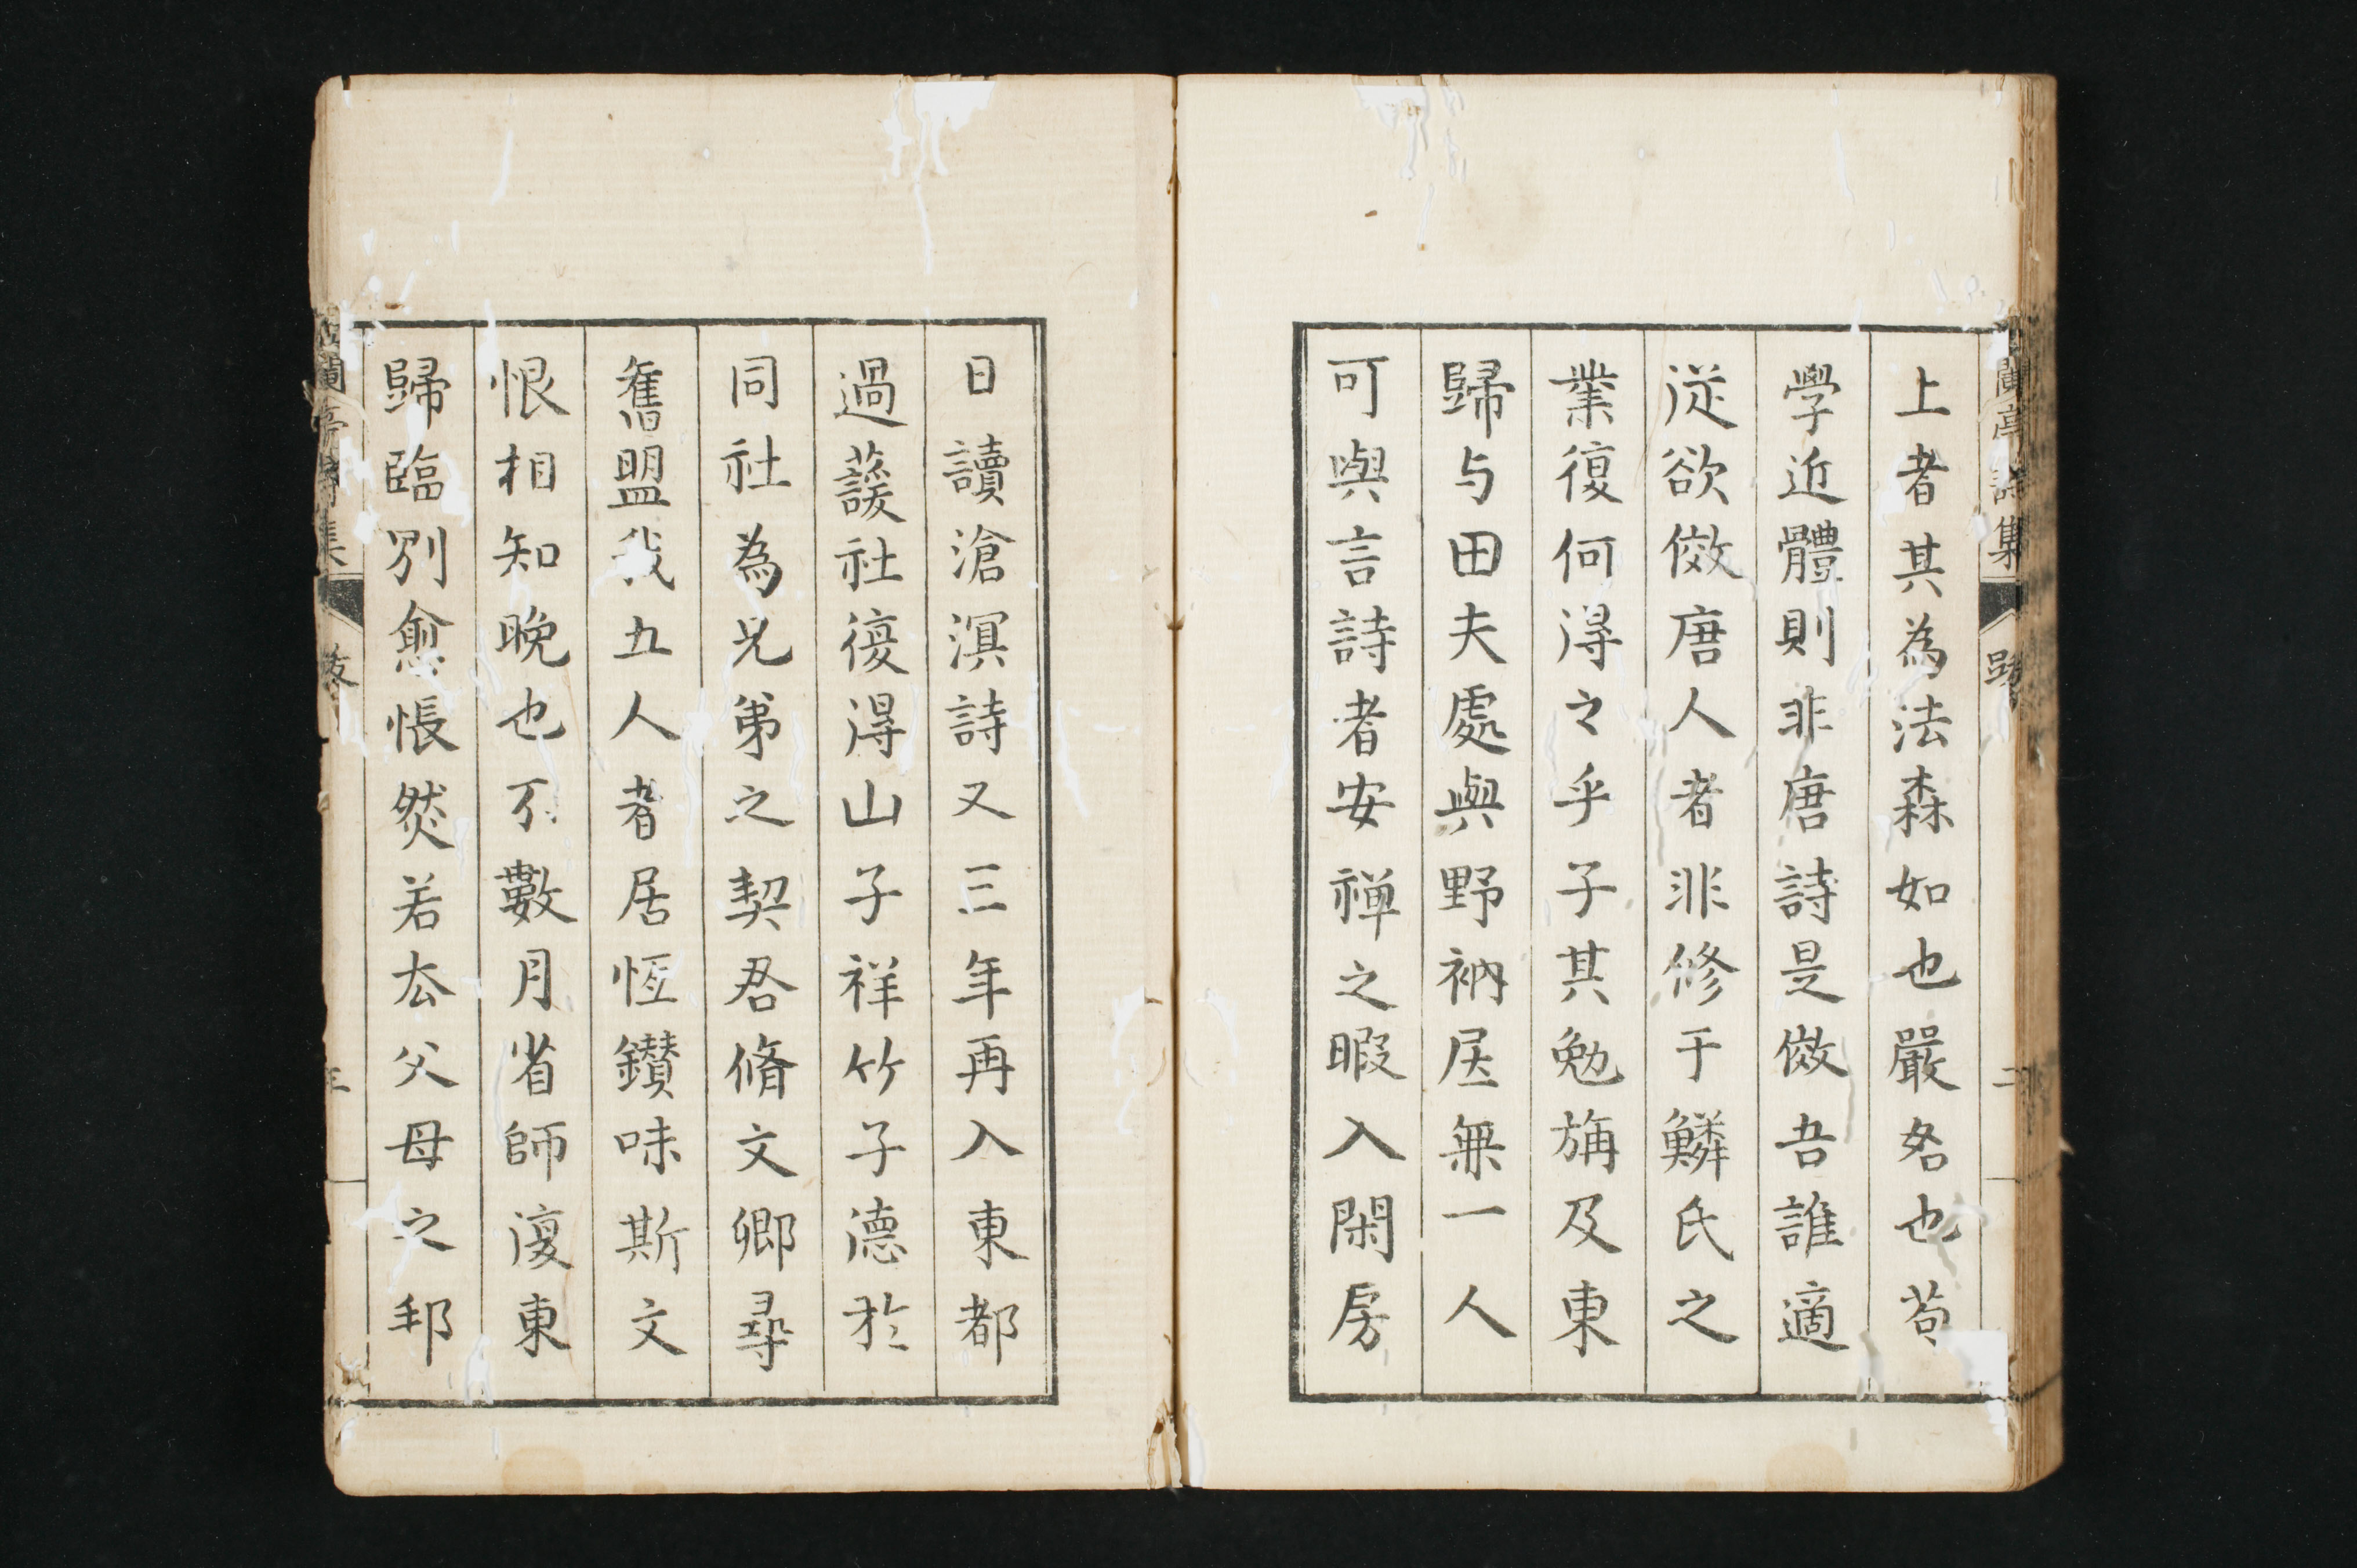 上者其為法森如也嚴如也苟
學近體則非唐詩是倣吾誰適
從欲倣唐人者非修于鱗氏之
業復何得之乎子其勉旃及東
歸与田夫處與野衲居無一人
可與言詩者安禅之暇入閑房
蘭亭詩集 跋 二
日讀滄溟詩又三年再入東都
過蘐社復得山子祥竹子德於
同社為兄弟之契君脩文卿尋
舊盟我五人者居恆鑽味斯文
恨相知晚也不數月省師復東
歸臨別愈悵然若去父母之邦
蘭亭詩集